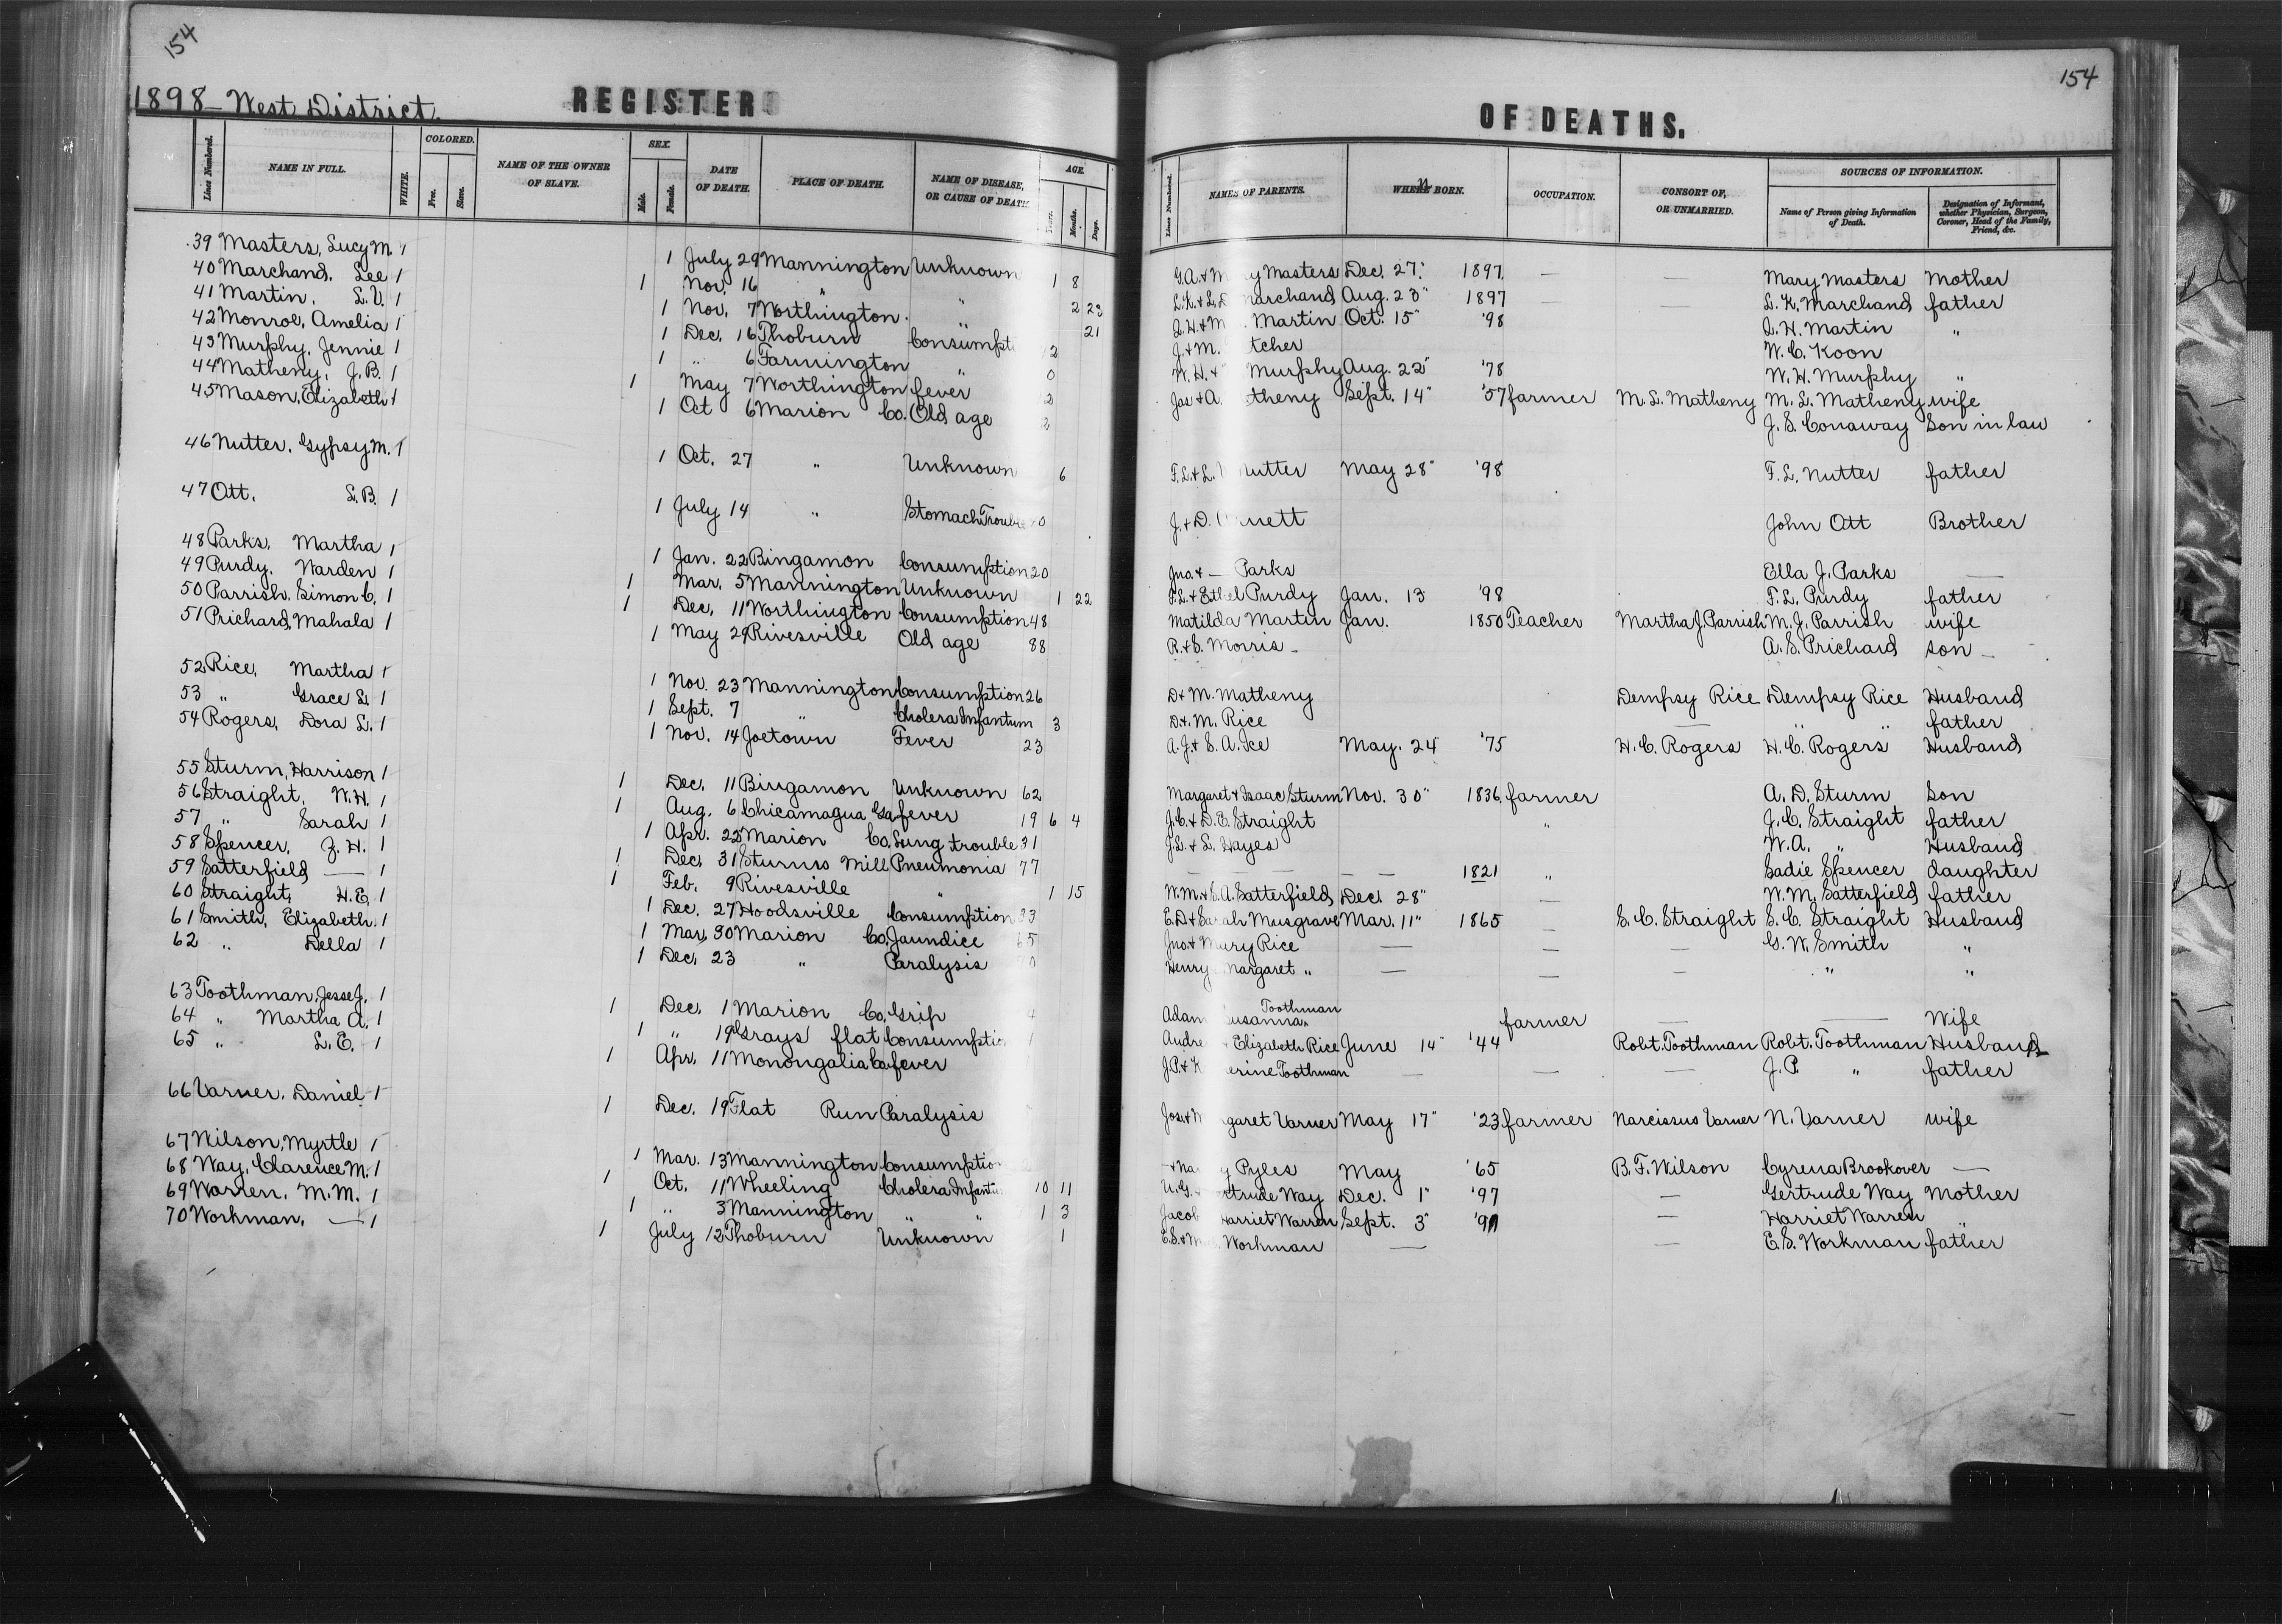 154
1898 West District. REGISTER
Lines Numbered. NAME IN FULL. WHITE. COLORED. Free. Slave. NAME OF THE OWNER OF SLAVE. SEX. Male. Female. DATE OF DEATH. PLACE OF DEATH. NAME OF DISEASE, OR CAUSE OF DEATH. AGE. Years. Months. Days.
39 Masters, Lucy M. 1 1 July 29 Mannington Unknown 1 8
40 Marchand, Lee 1 1 Nov. 16 " " 2 22
41 Martin, L.V. 1 1 Nov. 7 Worthington. " 21
42 Monroe, Amelia 1 1 Dec. 16 Thoburn Consumpt 2
43 Murphy, Jennie 1 1 " 6 Farmington " 0
44 Matheny, J.B. 1 1 May 7 Worthington fever 2
45 Mason, Elizabeth 1 1 Oct 6 Marion Co. Old age 2
46 Nutter, Gypsy M. 1 1 Oct. 27 " Unknown 6
47 Ott, L.B. 1 1 July 14 " Stomach Trouble 0
48 Parks, Martha 1 1 Jan. 22 Bingamon Consumption 20
49 Purdy, Warden 1 1 Mar. 5 Mannington Unknown 1 22
50 Parrish, Simon C. 1 1 Dec. 11 Worthington Consumption 48
51 Prichard, Mahala 1 1 May 29 Rivesville Old age 88
52 Rice, Martha 1 1 Nov. 23 Mannington Consumption 26
53 " Grace L. 1 1 Sept. 7 " Cholera Infantum 3
54 Rogers, Dora L. 1 1 Nov. 14 Joetown Fever 23
55 Sturm, Harrison 1 1 Dec. 11 Bingamon Unknown 62
56 Straight, W.H. 1 1 Aug. 6 Chicamagua Ga fever 19 6 4
57 " Sarah 1 1 Apr. 22 Marion Co. Lung trouble 31
58 Spencer, Z.H. 1 1 Dec. 31 Sturms Mill Pneumonia 77
59 Satterfield — 1 1 Feb. 9 Rivesville " 1 15
60 Straight, H.E. 1 1 Dec. 27 Hoodsville Consumption 33
61 Smith, Elizabeth. 1 1 Mar. 30 Marion Co. Jaundice 65
62 " Della 1 1 Dec. 23 " Paralysis 0
63 Toothman, Jesse J. 1 1 Dec. 1 Marion Co. Grip
64 " Martha A. 1 1 " 19 Grays flat Consumptio
65 " L.E. 1 1 Apr. 11 Monongalia Co fever
66 Varner, Daniel 1 1 Dec. 19 Flat Run Paralysis
67 Wilson, Myrtle 1 1 Mar. 13 Mannington Consumptio
68 Way, Clarence M. 1 1 Oct. 11 Wheeling Cholera Infantu 10 11
69 Warren, M.M. 1 1 " 3 Mannington " " 1 3
70 Workman, — 1 1 July 12 Thoburn Unknown 1
154
OF DEATHS.
Lines Numbered. NAMES OF PARENTS. WHEN BORN. OCCUPATION. CONSORT OF, OR UNMARRIED. SOURCES OF INFORMATION. Name of Person giving Information of Death. Designation of Informant, whether Physician, Surgeon, Coroner, Head of the Family, Friend, &c.
G.A. & M y Masters Dec. 27" 1897 — — Mary Masters Mother
L.K. & L. Marchand Aug. 23" 1897 — — L.K. Marchand father
& M Martin Oct. 15" '98 H. Martin "
J. & M. tcher W.C. Koon
W.H. & Murphy Aug. 22" '78 W.H. Murphy "
Jas & A. theny Sept. 14" '57 farmer M.L. Matheny M.L. Matheny wife
J.S. Conaway Son in law
F.L. & L. Nutter May 28" '98 F.L. Nutter father
J. & D. nett John Ott Brother
Jno. & — Parks Ella J. Parks —
F.L. & Ethel Purdy Jan. 13 '98 F.L. Purdy father
Matilda Martin Jan. 1850 Teacher Martha J. Parrish M.J. Parrish wife
R. & S. Morris — A.S. Prichard son —
D & M. Matheny Dempsy Rice Dempsy Rice Husband
D. & M. Rice — " " father
A.J. & S.A. Ice May. 24" '75 H.C. Rogers H.C. Rogers Husband
Margaret & Isaac Sturm Nov. 30" 1836 farmer A.D. Sturm Son
J.C. & D.E. Straight " J.C. Straight father
J.L. & L. Hayes W.A. " Husband
— — — — — 1821 " Sadie Spencer daughter
W.M. & S.A. Satterfield Dec. 28" — W.M. Satterfield father
E.D & Sarah Musgrave Mar. 11" 1865 — S.C. Straight S.C. Straight Husband
Jno. & Mary Rice — — — G.W. Smith "
Henry Margaret " — — — " "
Adam Susanna Toothman " farmer — — Wife
Andre & Elizabeth Rice June 14" '44 Robt. Toothman Robt. Toothman Husband
J.P. & K erine Toothman — — — J.P. " father
Jos. & M garet Varner May 17" '23 farmer Narcissus Varner N. Varner wife
— & Na y Pyles May '65 B.F. Wilson Cyrena Brookover —
U.G. rtrude Way Dec. 1" '97 — Gertrude Way Mother
Jacob Harriet Warren Sept. 3" — Harriet Warren "
E.S. & M Workman — — E.S. Workman father